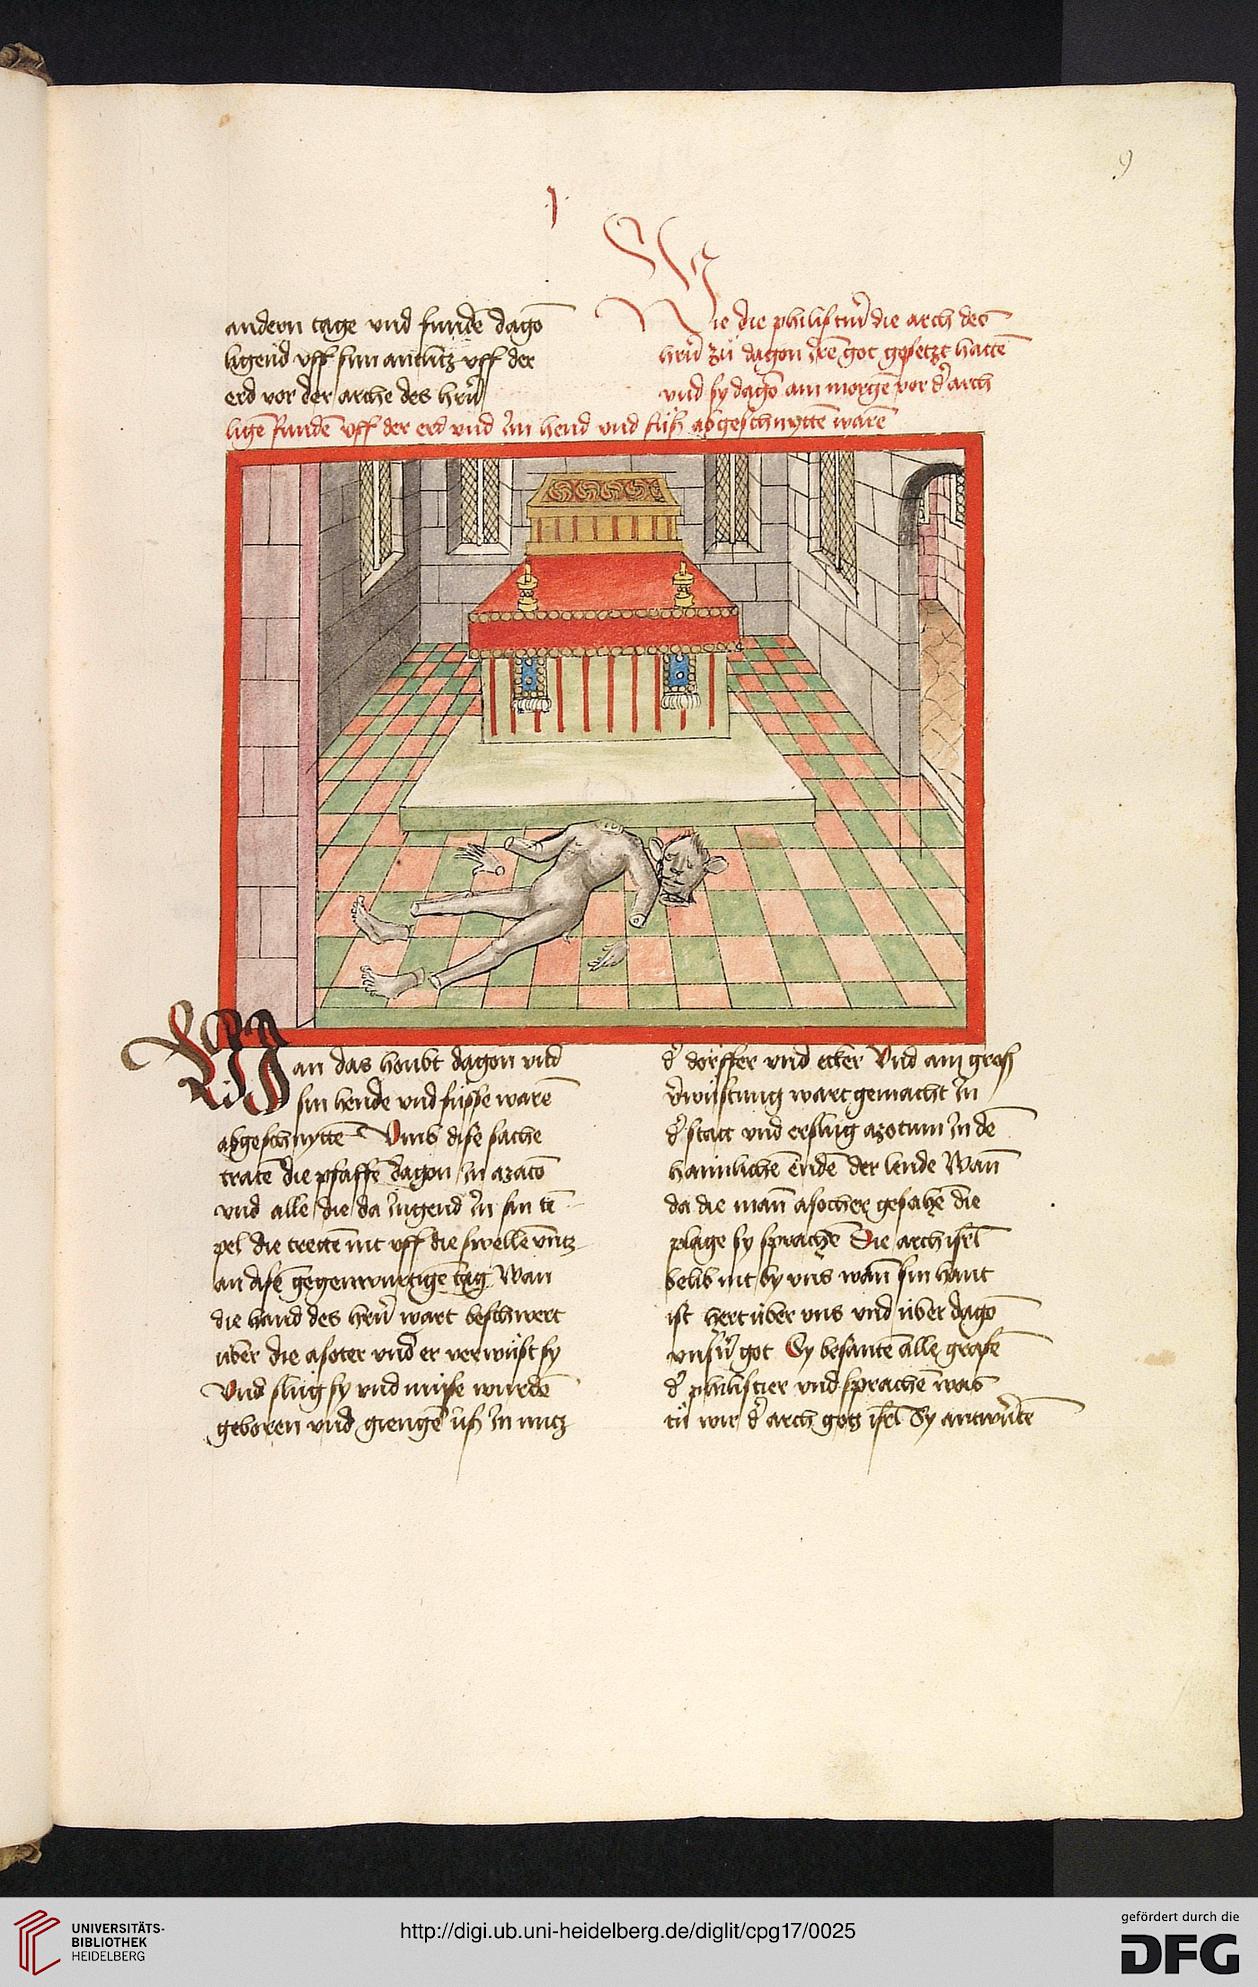 9
I
andern tage und funde dago͞
ligend uff sim antlitz uff der
erd vor der arche des hrn̄
Wie die philistin̄ die arch des
hrn̄ zu dagon Jre͞ got gesetzt hatte͞
und sy dago͞ am morge͞ vor d͛ arch
lige͞ funde͞ uff der erd und Jm hend und füß abgeschnytte͞ ware͞
Wan das houbt dagon und
sin hende und füsse ware͞
abgeschnytte͞ Umb dise sache
trate͞ die pfaffe͞ dagon in azato͞
und alle die da Jngend Jn sin te͞-
pel die trette͞ nit uff die swelle untz
an dise͞ gegenwurtige͞ tag Wan
die hand des hrn̄ wart beschwert
über die asoter und er verwüst sy
Und slug sy und müse wurde͞
geboren und gienge͞ uß in mitz
d͛ dörffer und ecker Und ain groß
v͛wüstung wart gemacht Jn
d͛ statt und erslug azotum Jn de͞
haimliche͞ ende͞ der lende Wan͞
da die man͞ asother gesahe͞ die
plage sy sprache͞ Die arch isrl͞
belib nit by uns wan͞ sin hant
ist hert über uns und über dago͞
unsern͞ got Sy besante͞ alle grafe͞
d͛ philistier und sprache͞ was
tü wir d͛ arch gotz isrl͞ Sy antwrte͞
UNIVERSITÄTS-
BIBLIOTHEK
HEIDELBERG
http://digi.ub.uni-heidelberg.de/diglit/cpg17/0025
gefördert durch die
DFG